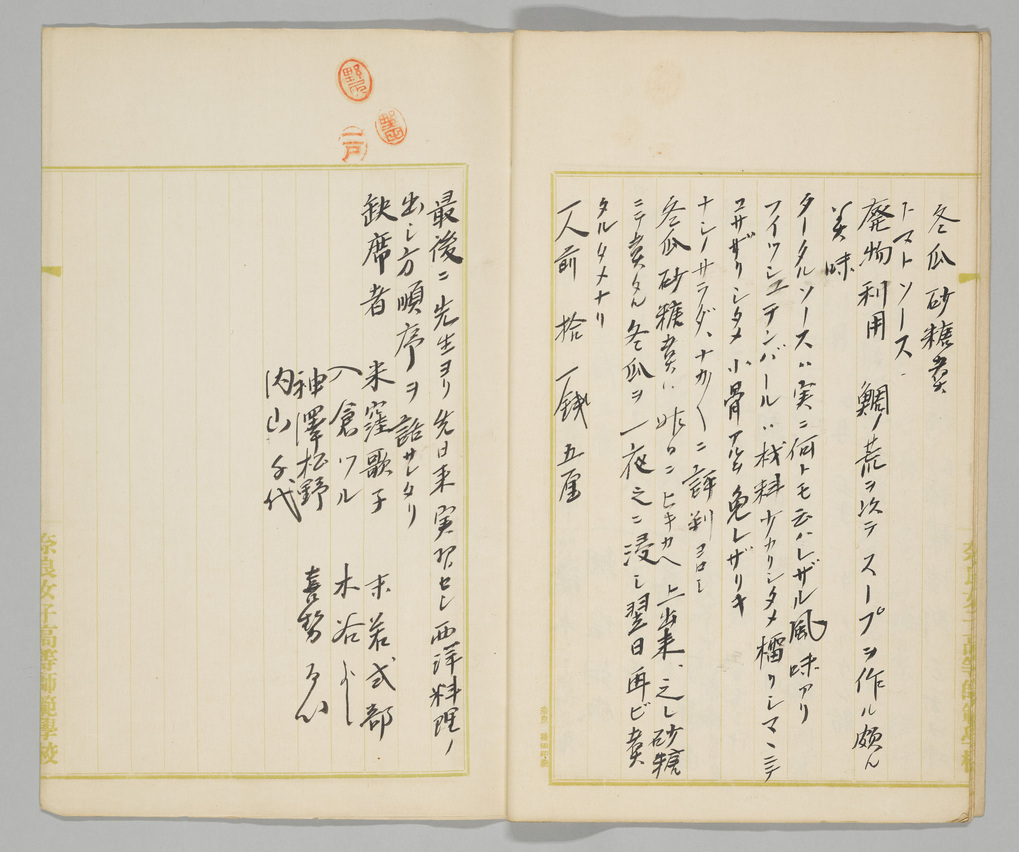 冬瓜砂糖煮
トマトソース
廃物利用 鯛ノ荒ヲ以テスープヲ作ル頗ル
美味
タータルソースハ実ニ何トモ云ハレザル風味アリ
フイツシユテンバールハ材料少カリシタメ擂リシマヽニテ
コサザリシタメ小骨アルヲ免レザリキ
ナシノサラダ、ナカ〱ニ評判ヨロシ
冬瓜砂糖煮ハ昨日ニヒキカヘ上出来、之レ砂糖
ニテ煮タル冬瓜ヲ一夜之ニ浸シ翌日再ビ煮
タルタメナリ
一人前 拾一銭五厘
最後ニ先生ヨリ先日来実習セシ西洋料理ノ
出シ方順序ヲ話サレタリ
缺席者 米窪歌子 末若式部
入倉ツル 木谷よし
神澤松野 喜勢
内山千代
野尻
二戸
奈良女子高等師範學校
奈良女子高等師範學校